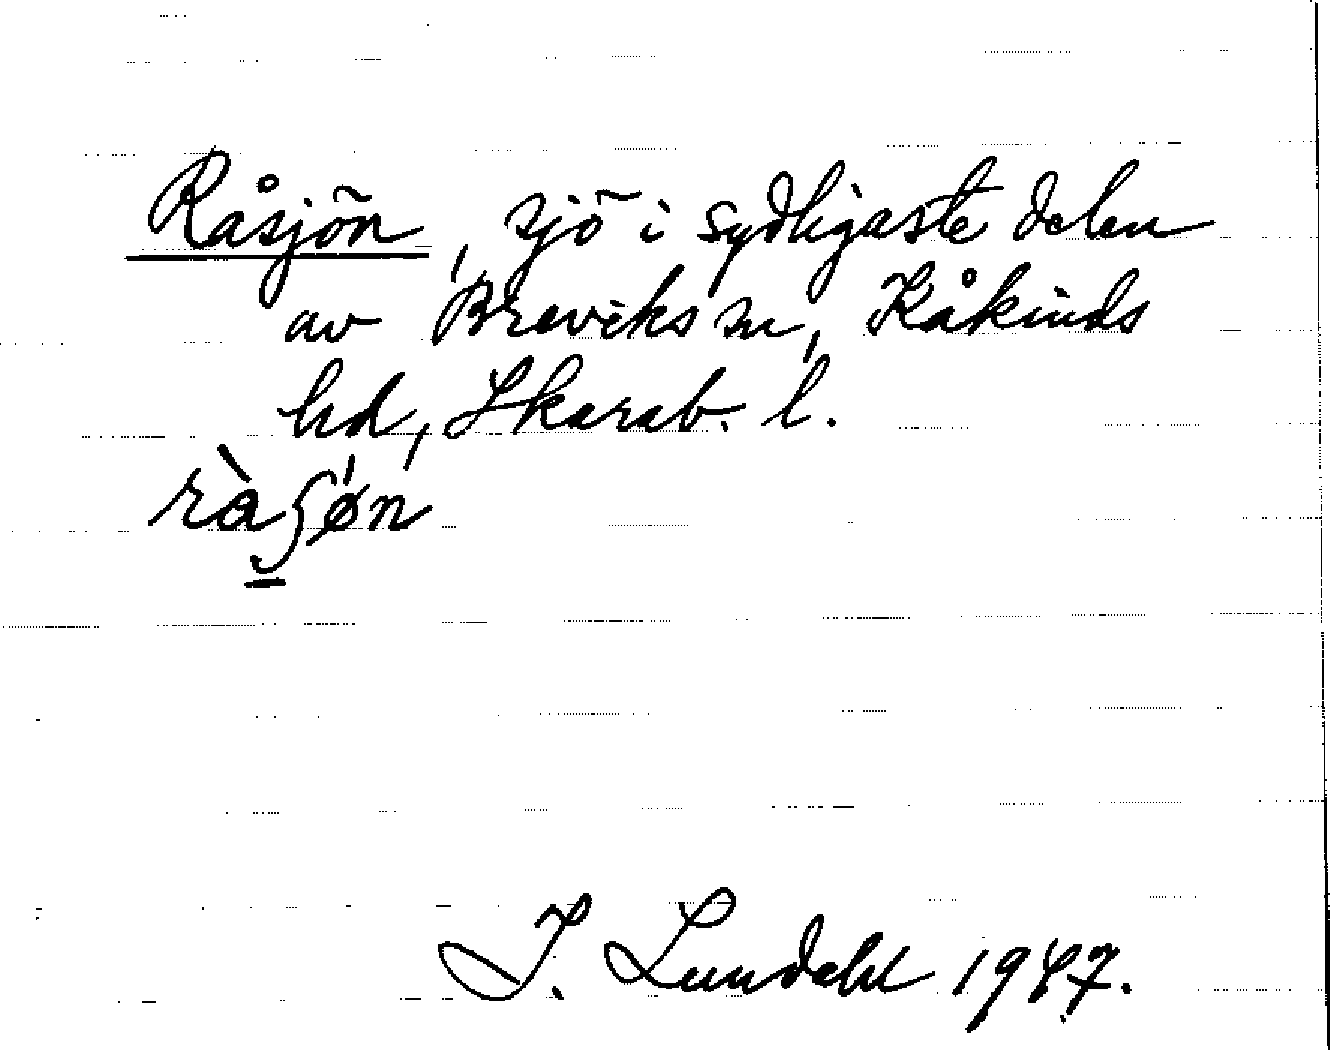 Råsjön, sjö i sydligaste delen
av Breviks sn, Kåkinds
hd, Skarab. l.
I. Lundahl 1947.